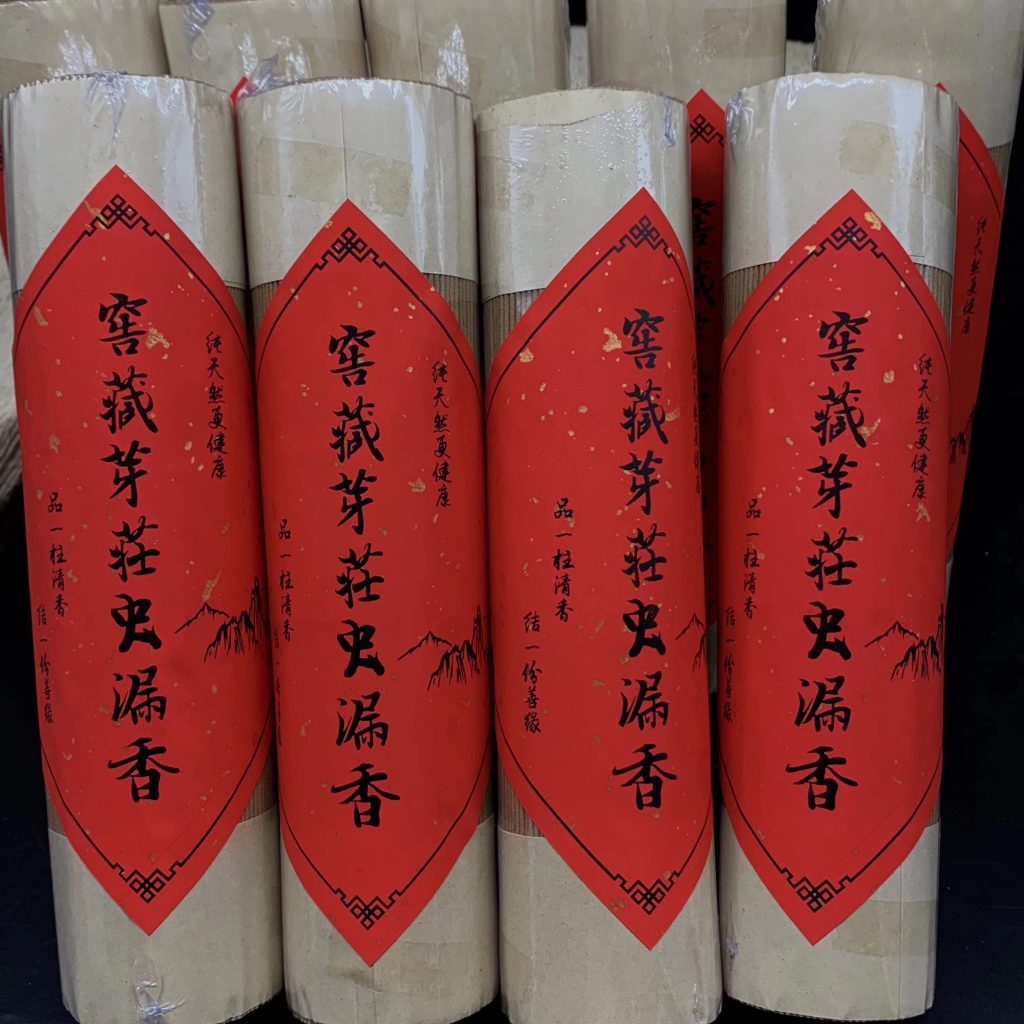 纯天然更健康
窖藏芽莊虫漏香
品一柱清香
结一份善缘
纯天然更健康
窖藏芽莊虫漏香
品一柱清香
结一份善缘
窖藏芽莊虫漏香
品一柱清香
结一份善缘
纯天然更健康
窖藏芽莊虫漏香
品一柱清香
结一份善缘
纯天然更健康